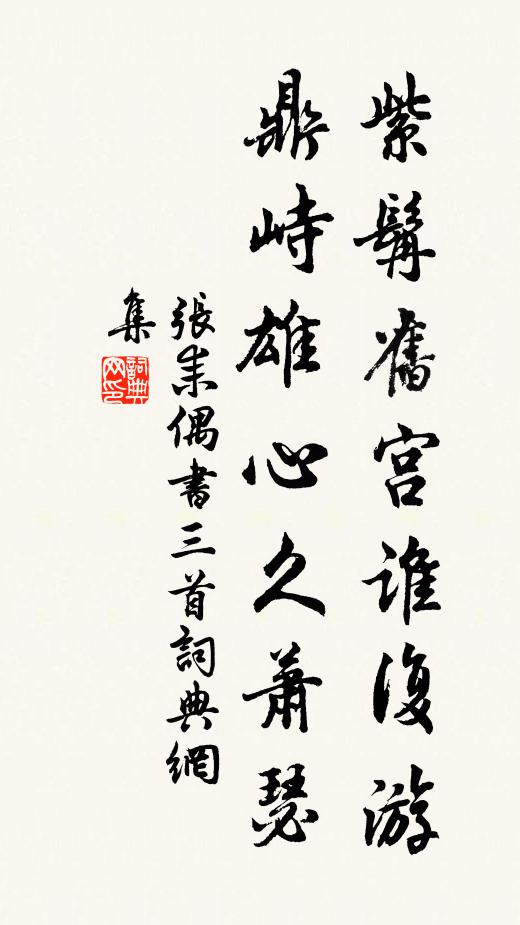 紫髯舊宮誰復游
鼎峙雄心久蕭瑟
張耒偶書三首詞典網
集
詞典
網印